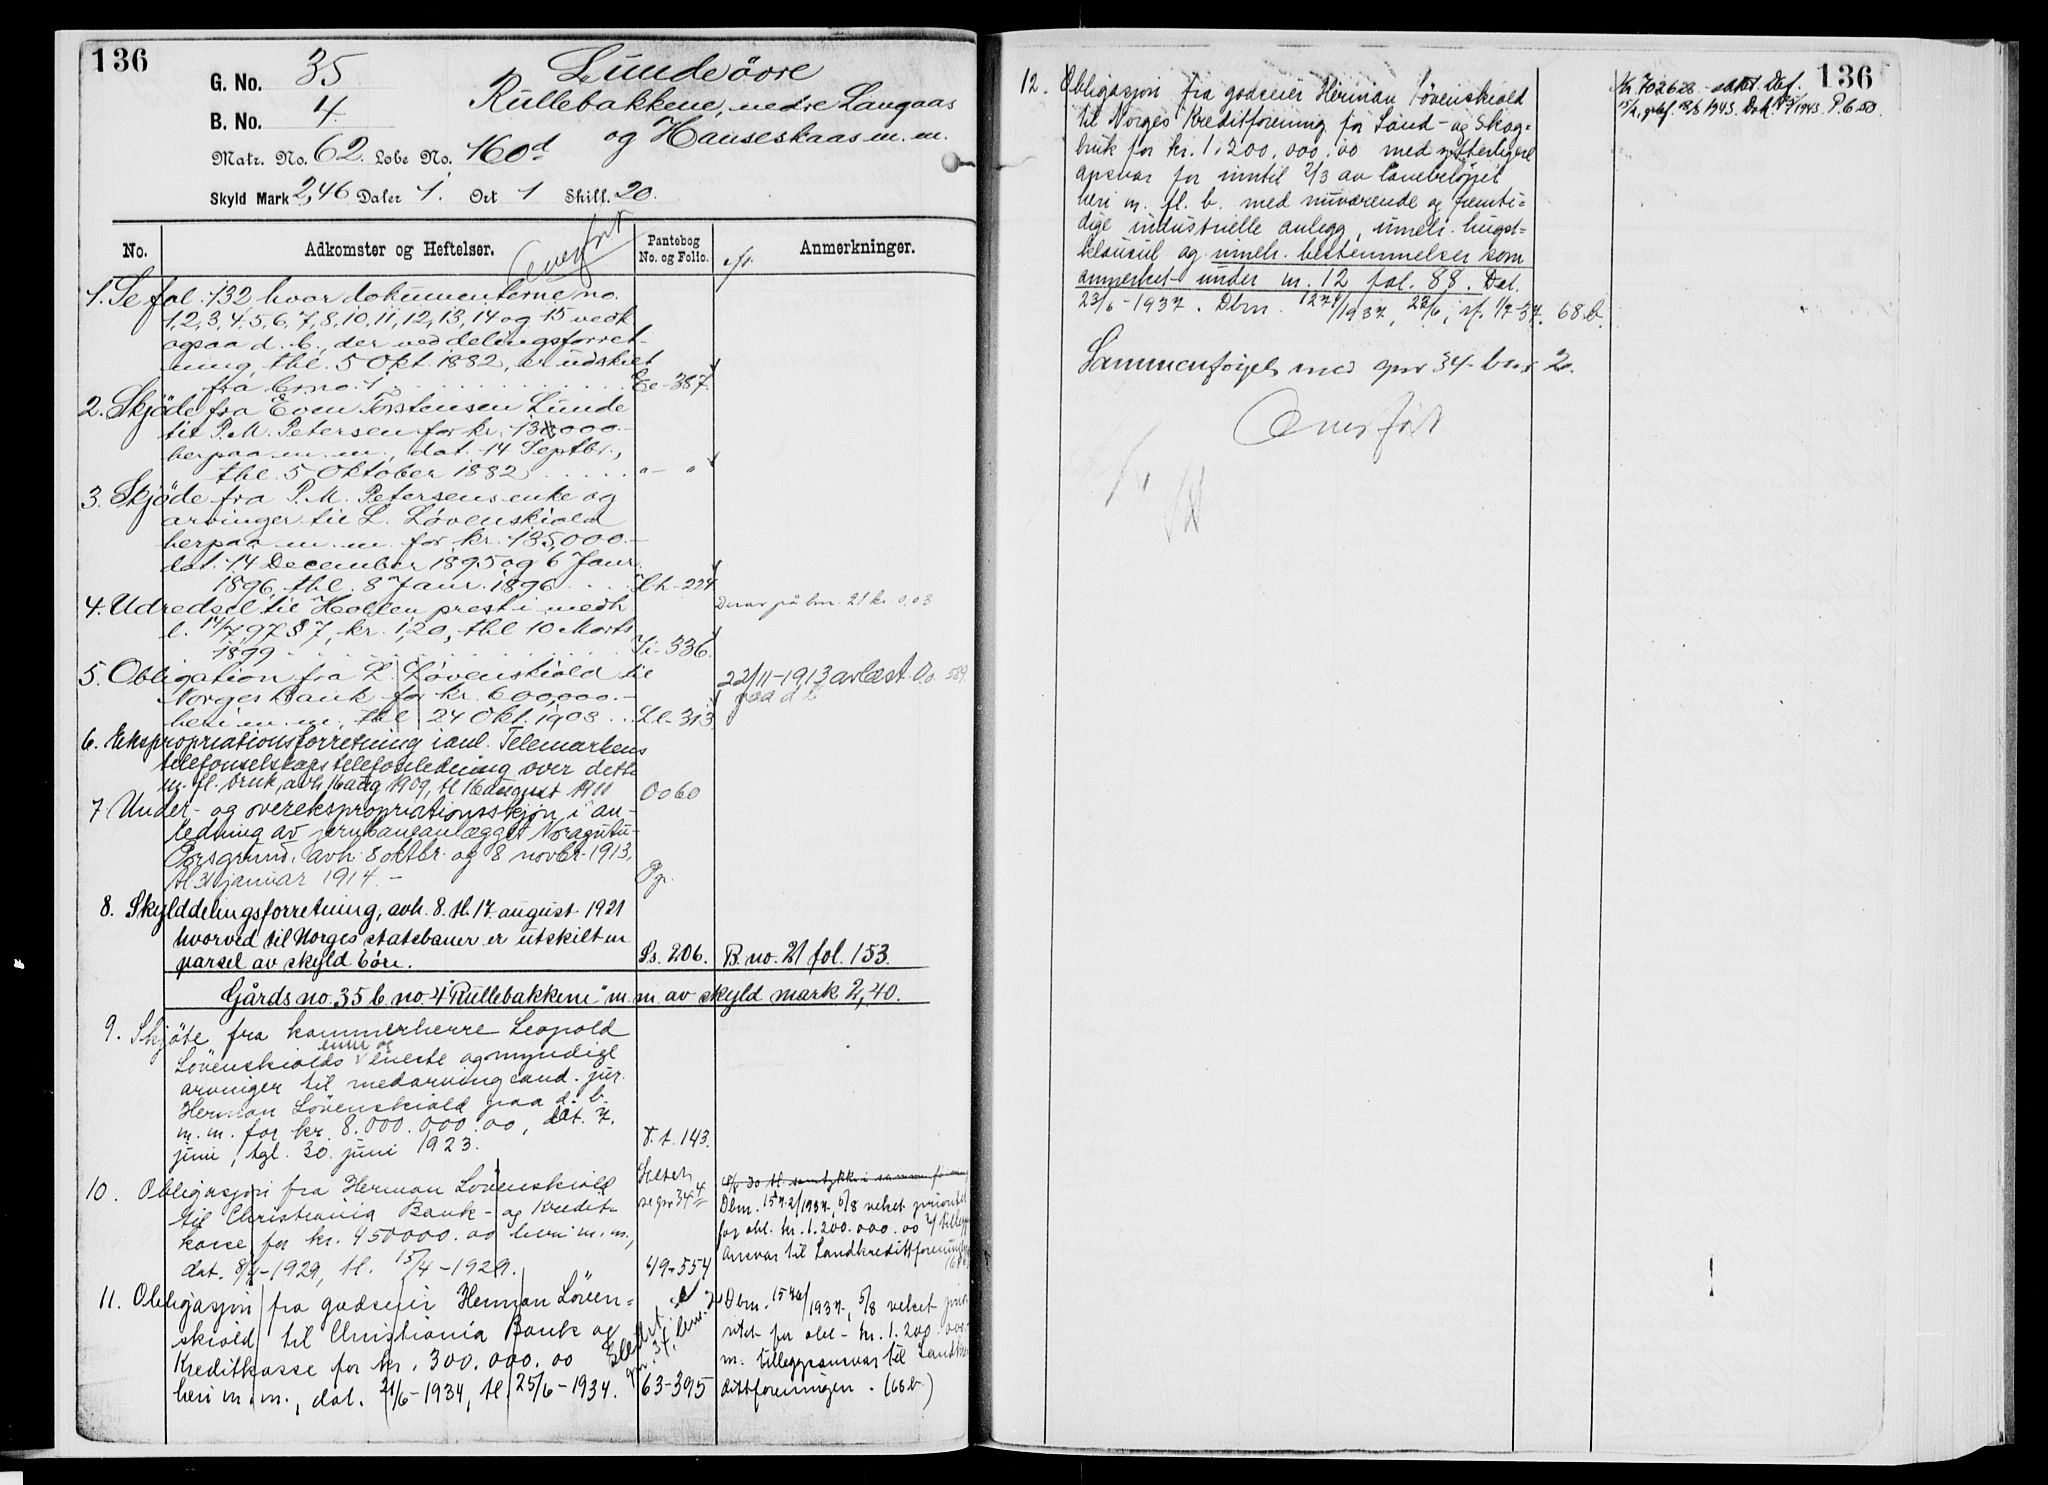 136
G. No. 35
B. No. 4
Matr. No. 62. Løbe No. 160d
Skyld Mark 2,46 Daler 1. Ort 1 Skill. 20.
Lunde öore
Rullebakkene, nedre Langaas
og Hauseskaas m. m.
No.
Adkomster og Heftelser.
Overfört
Pantebog
No. og Folio.
Anmerkninger.
1. Se fol. 132 hvor dokumenterne no.
1, 2, 3, 4, 5, 6, 7, 8, 10, 11, 12, 13, 14 og 15 vedk
ogsaa d. b., der ved delingsforret-
ning, thl. 5 Okt. 1882, er udskilt
fra brno. 1. Ee-387.
2. Skjöde fra Even Torstensen Lunde
til P. M. Petersen for kr. 000.-
herpaa m. m., dat. 14 Septbr.,
thl. 5 Oktober 1882 " - "
3. Skjöde fra P. M. Petersens enke og
arvinger til L. Løvenskiold
herpaa m. m. for kr. 135,000.-
dat. 14 December 1895 og 6 Janr.
1896, thl. 8 Janr. 1896 Hh-224
4. Udredsel til Hollen prest i medh
l. 14/7 97 § 7, kr. 1,20, thl 10 Marts
1899 Ii-336.
Derav på bnr. 21 kr. 0,03
5. Obligation fra L. Løvenskiold til
Norges Bank for kr. 600,000.-
heri m. m. thl 24 Okt. 1903 Ll-313
22/11-1913 avlæst Oo 589
paa d b
6. Ekspropriationsforretning i anl. Telemarkens
telefonselskaps telefonledning over dette
m. fl. bruk, avh. 16 aug 1909, tl 16 august 1911 Oo 60
7. Under- og overekspropriationsskjøn i an-
ledning av jernbaneanlægget Noragutu-
Porsgrund, avh. 8 oktbr. og 8 novbr. 1913,
tl 31 januar 1914. - Pp.
8. Skylddelingsforretning, avh. 8. tl. 17. august 1921
hvorved til Norges statsbaner er utskilt en
parsel av skyld 6 øre. Ss. 206. B. no. 21 fol. 153.
Gårds no. 35 b. no. 4 "Rullebakkene" m. m. av skyld mark 2,40.
9. Skjöte fra kammerherre Leopold
enke og
Lövenskiolds eneste og myndige
arvinger til medarving cand. jur.
Herman Lövenskiold paa d. b.
m. m. for kr. 8.000.000.00, dat. 7.
juni, tgl. 30. juni 1923. T. t. 143.
10. Obligasjon fra Herman Lövenskiold
til Christiania Bank- og Kredit-
kasse for kr. 950000.00 heri m. m.,
dat. 8/4-1929, tl. 15/4-1929. 49-554
Slettet
se gnr 34-4
Dbm. 1572/1937, 5/8 veket prioritet
for obl. kr. 1.200.000.00 m/ tillegg
ansvar til Landkreditforening
11. Obligasjon fra godseier Herman Löven-
skiold til Christiania Bank og
Kreditkasse for kr. 300.000.00
heri m. m., dat. 21/6-1934, tl. 25/6-1934. 63-395
Slettet. gnr. 34, bnr. 2
Dbm. 1572/1937, 5/8 veket prio-
ritet for obl. kr. 1.200.000.-
m. tilleggsansvar til Landkre-
ditforeningen. (68b.)
136
12. Obligasjon fra godseier Herman Lövenskiold
til Norges Kreditforening for Land- og Skog-
bruk for kr. 1.200.000.00 med ytterligere
ansvar for inntil 2/3 av lånebelöpet
heri m. fl. b. med nuværende og fremti-
dige industrielle anlegg, inneh. hugst-
klausul og inneh. bestemmelser som
anmerket under nr. 12 fol. 88. Dat.
23/6-1937. Dbm. 1271/1937, 28/6, rf. 1/7-37. 68 b.
Kr. 702628.- Dat.
1943. P. 650.
Sammenföyet med gnr 34 bnr 2.
Overfört